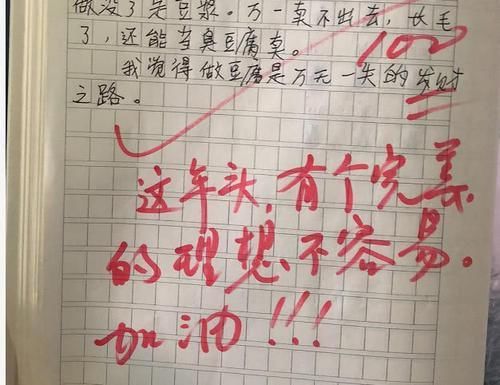 做没了是豆浆。万一卖不出去，长毛
了，还能当臭豆腐卖。
100
我觉得做豆腐是万无一失的发财
之路。
这年头，有个完美
的理想不容易。
加油!!!